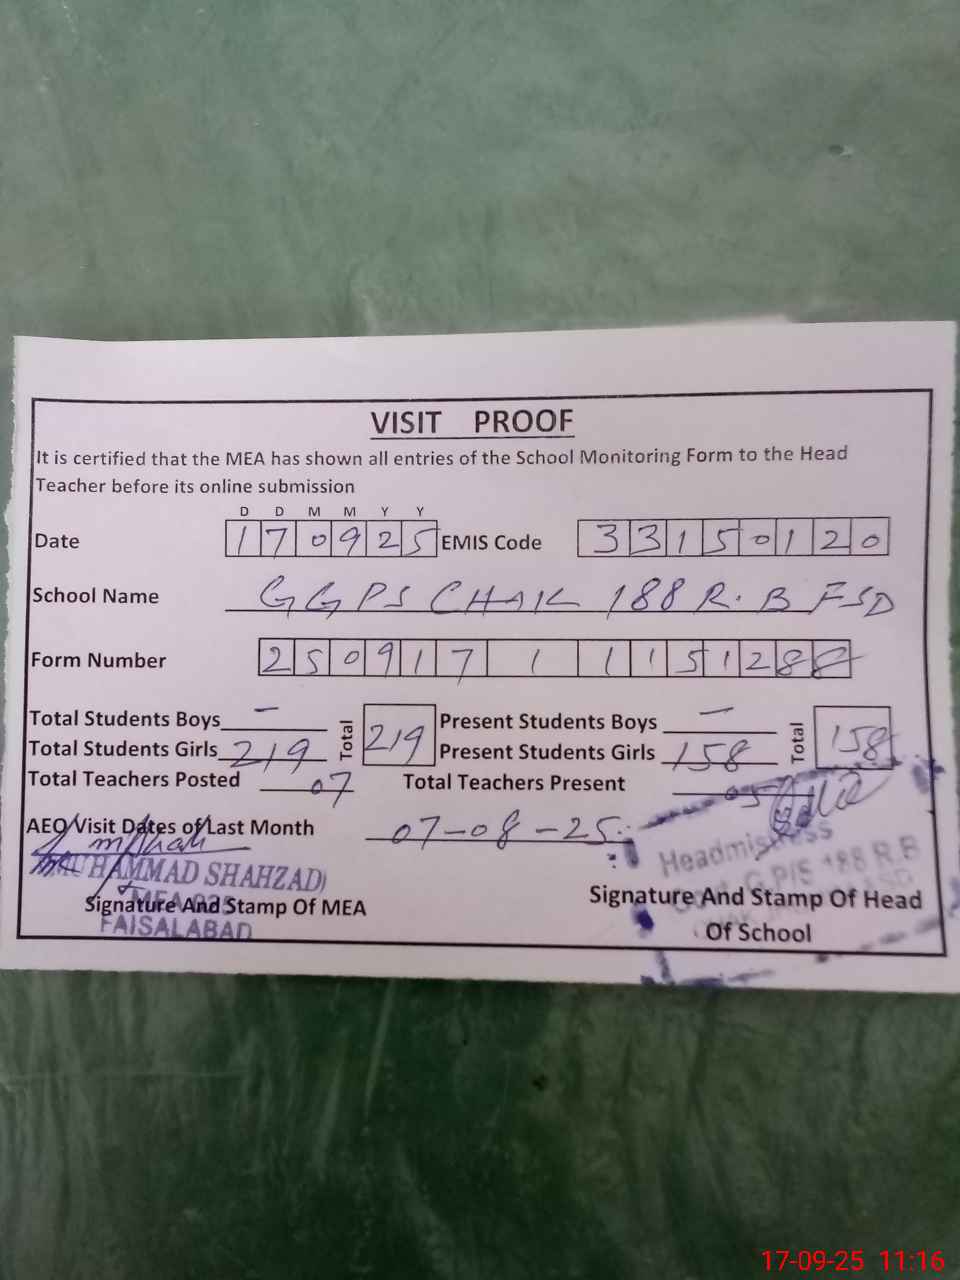 VISIT PROOF
It is certified that the MEA has shown all entries of the School Monitoring Form to the Head
Teacher before its online submission
D D M M Y Y
Date 170925 EMIS Code 33150120
School Name GGPS CHAK 188 R.B FSD
Form Number 250917 1 1 1 5 1 2 8 8
Total Students Boys - Total 219 Present Students Boys - Total 158
Total Students Girls 219 Present Students Girls 158
Total Teachers Posted 07 Total Teachers Present 05
AEO Visit Dates of Last Month 07-08-25
MUHAMMAD SHAHZAD
MEA
Signature And Stamp Of MEA
FAISALABAD
Headmistress
G.P/S 188 R.B
Signature And Stamp Of Head
Of School
17-09-25 11:16